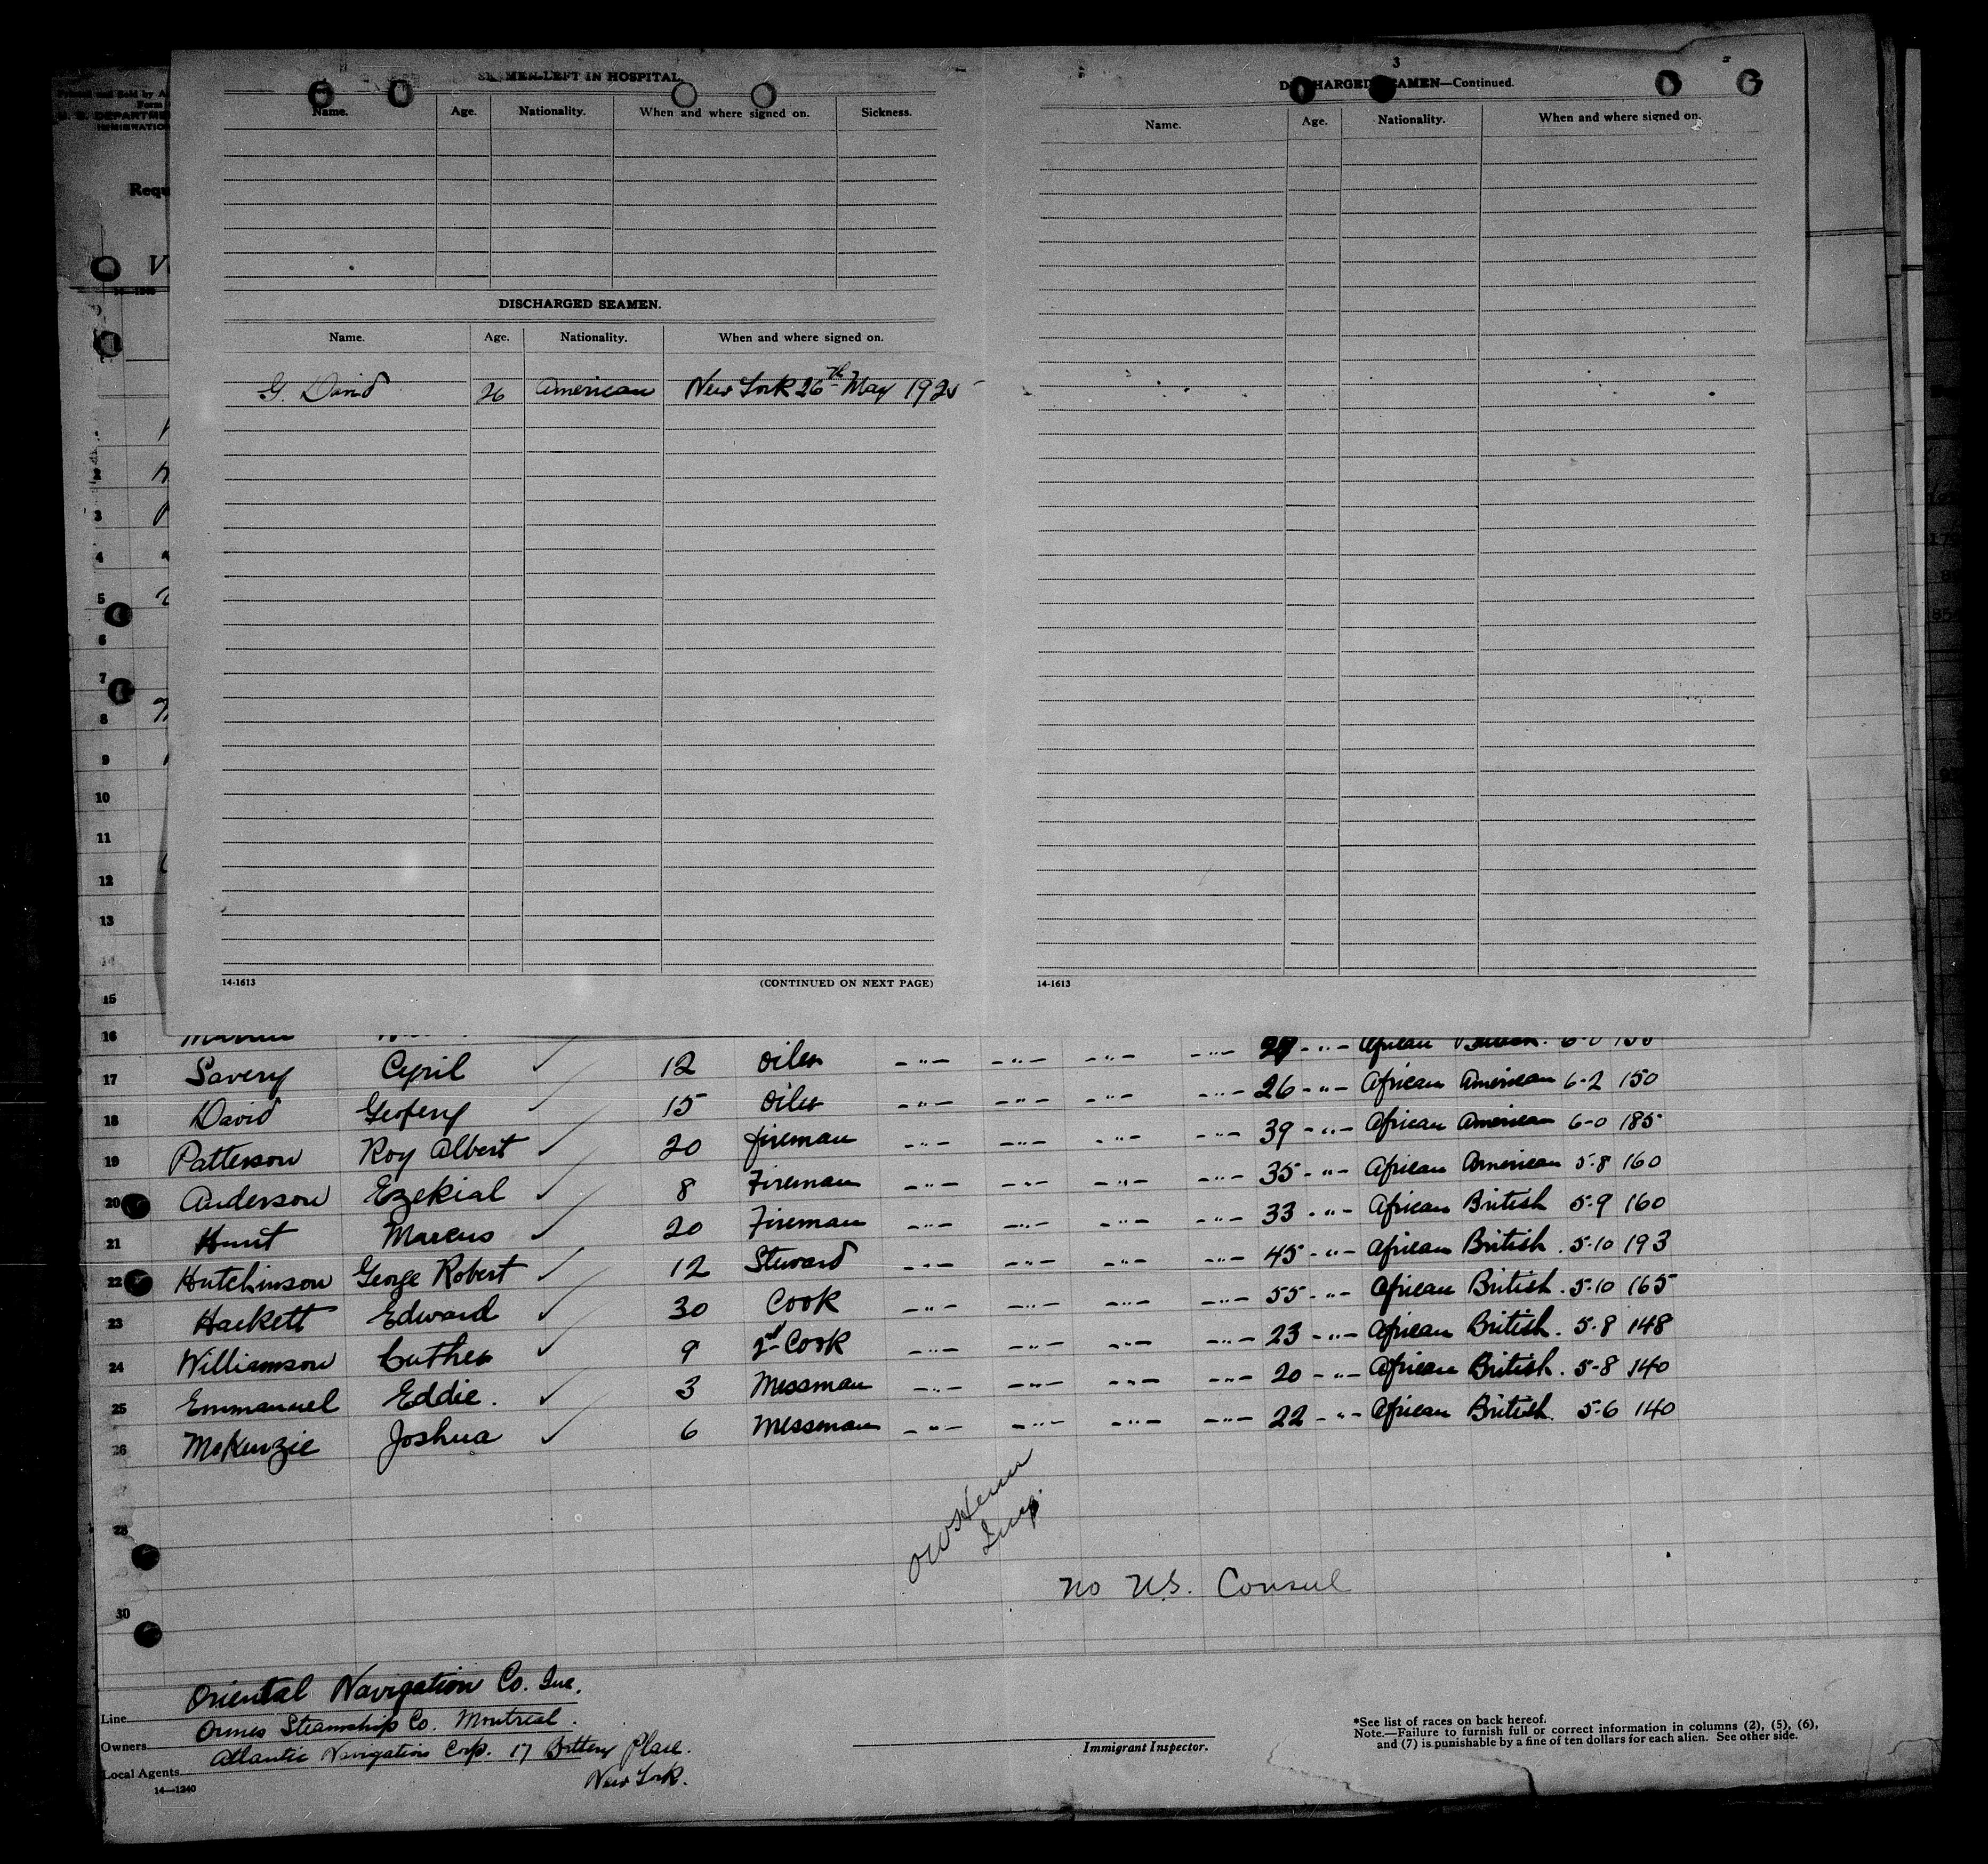 SEAMEN LEFT IN HOSPITAL.
Name. Age. Nationality. When and where signed on. Sickness.
DISCHARGED SEAMEN.
Name. Age. Nationality. When and where signed on.
G. David 26 American New York 26th May 1925
14-1613 (CONTINUED ON NEXT PAGE)
3
DISCHARGED SEAMEN—Continued.
Name. Age. Nationality. When and where signed on.
14-1613
Requ
1
2
3
4
5
6
7
8
9
10
11
12
13
14
15
16
17 Savery Cyril ✓ 12 oiler -"- -"- -"- -"- 29 -"- African British. 6-0 150
18 David Geofery 15 oiler -"- -"- -"- -"- 26 -"- African American 6-2 150
19 Patterson Roy Albert ✓ 20 fireman -"- -"- -"- -"- 39 -"- African American 6-0 185
20 Anderson Ezekial ✓ 8 Fireman -"- -"- -"- -"- 35 -"- African American 5-8 160
21 Hunt Marcus ✓ 20 Fireman -"- -"- -"- -"- 33 -"- African British 5-9 160
22 Hutchinson George Robert ✓ 12 Steward -"- -"- -"- -"- 45 -"- African British. 5-10 193
23 Hackett Edward ✓ 30 Cook -"- -"- -"- -"- 55 -"- African British. 5-10 165
24 Williamson Cuther ✓ 9 2nd Cook -"- -"- -"- -"- 23 -"- African British. 5-8 148
25 Emmanuel Eddie. ✓ 3 Messman -"- -"- -"- -"- 20 -"- African British. 5-8 140
26 McKenzie Joshua ✓ 6 Messman -"- -"- -"- -"- 22 -"- African British. 5-6 140
27
28
Insp.
no U.S. Consul
30
Line Oriental Navigation Co. Inc.
Owners Ormes Steamship Co. Montreal.
Local Agents Atlantic Navigation Corp. 17 Battery Place.
New York.
14—1240
Immigrant Inspector.
*See list of races on back hereof.
Note.—Failure to furnish full or correct information in columns (2), (5), (6),
and (7) is punishable by a fine of ten dollars for each alien. See other side.